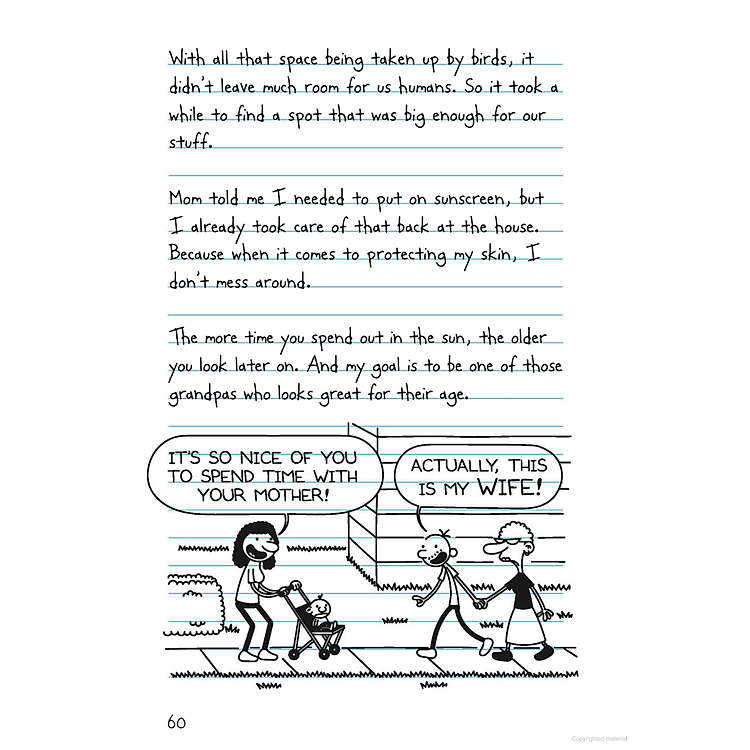 With all that space being taken up by birds, it
didn't leave much room for us humans. So it took a
while to find a spot that was big enough for our
stuff.
Mom told me I needed to put on sunscreen, but
I already took care of that back at the house.
Because when it comes to protecting my skin, I
don't mess around.
The more time you spend out in the sun, the older
you look later on. And my goal is to be one of those
grandpas who looks great for their age.
IT'S SO NICE OF YOU
TO SPEND TIME WITH
YOUR MOTHER!
ACTUALLY, THIS
IS MY WIFE!
60
Copyrighted material